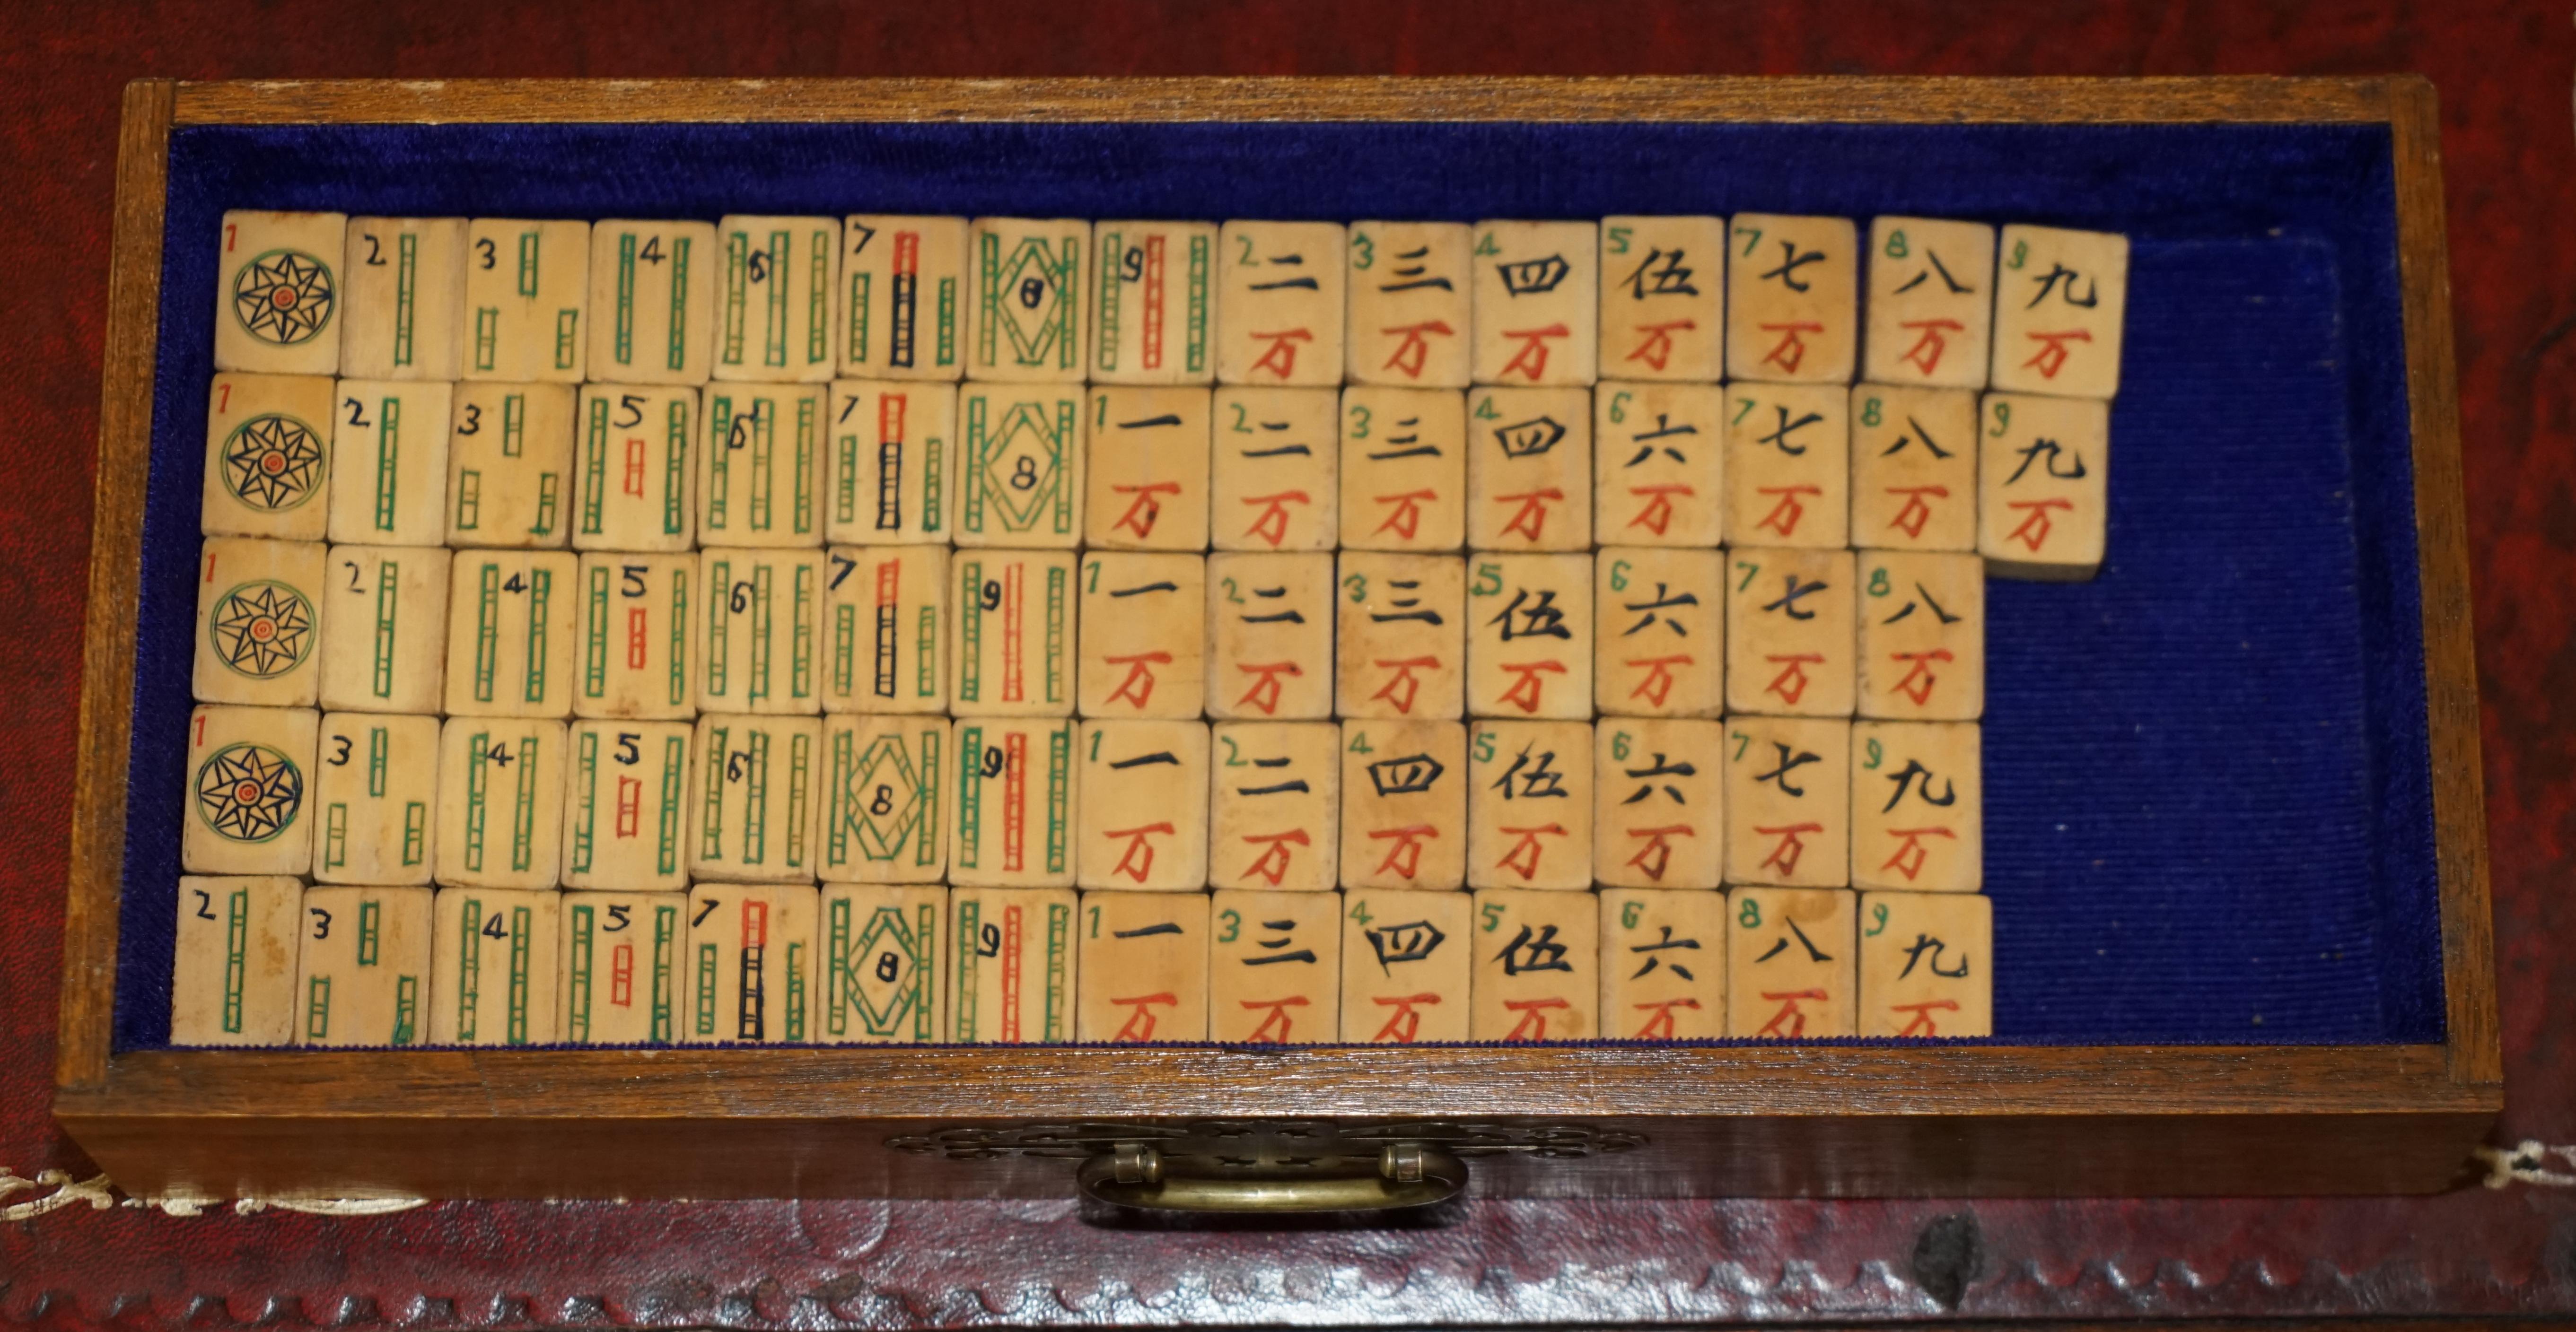 1 2 3 4 6 7 8 9 2 二万 3 三万 4 四万 5 伍万 7 七万 8 八万 9 九万
1 2 3 5 6 7 8 1 一万 2 二万 3 三万 4 四万 6 六万 7 七万 8 八万 9 九万
1 2 4 5 6 7 9 1 一万 2 二万 3 三万 5 伍万 6 六万 7 七万 8 八万
1 3 4 5 6 8 9 1 一万 2 二万 4 四万 5 伍万 6 六万 7 七万 9 九万
2 3 4 5 7 8 9 1 一万 3 三万 4 四万 5 伍万 6 六万 8 八万 9 九万